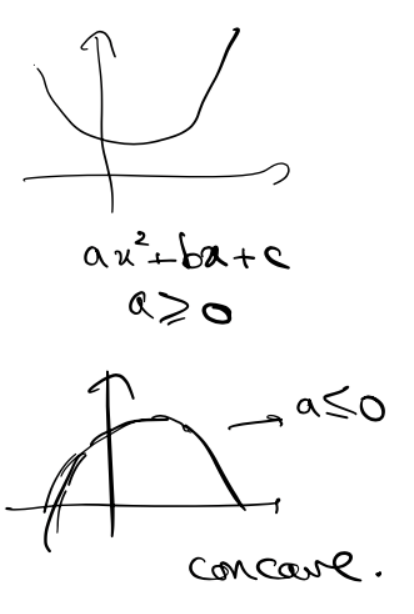 ax²+bx+c
a≥0
a≤0
concave.